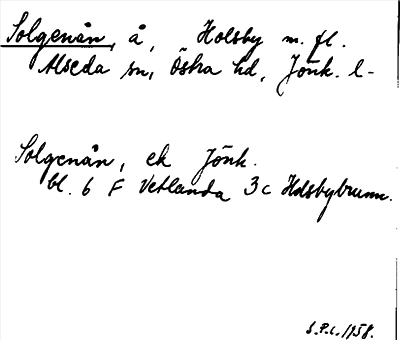 Solgenån, å, Holsby m. fl.
Alseda sn, Östra hd, Jönk. l-
Solgenån, ek Jönk.
bl. 6 F Vetlanda 3c Holsbybrunn.
S.P.L. 1958.